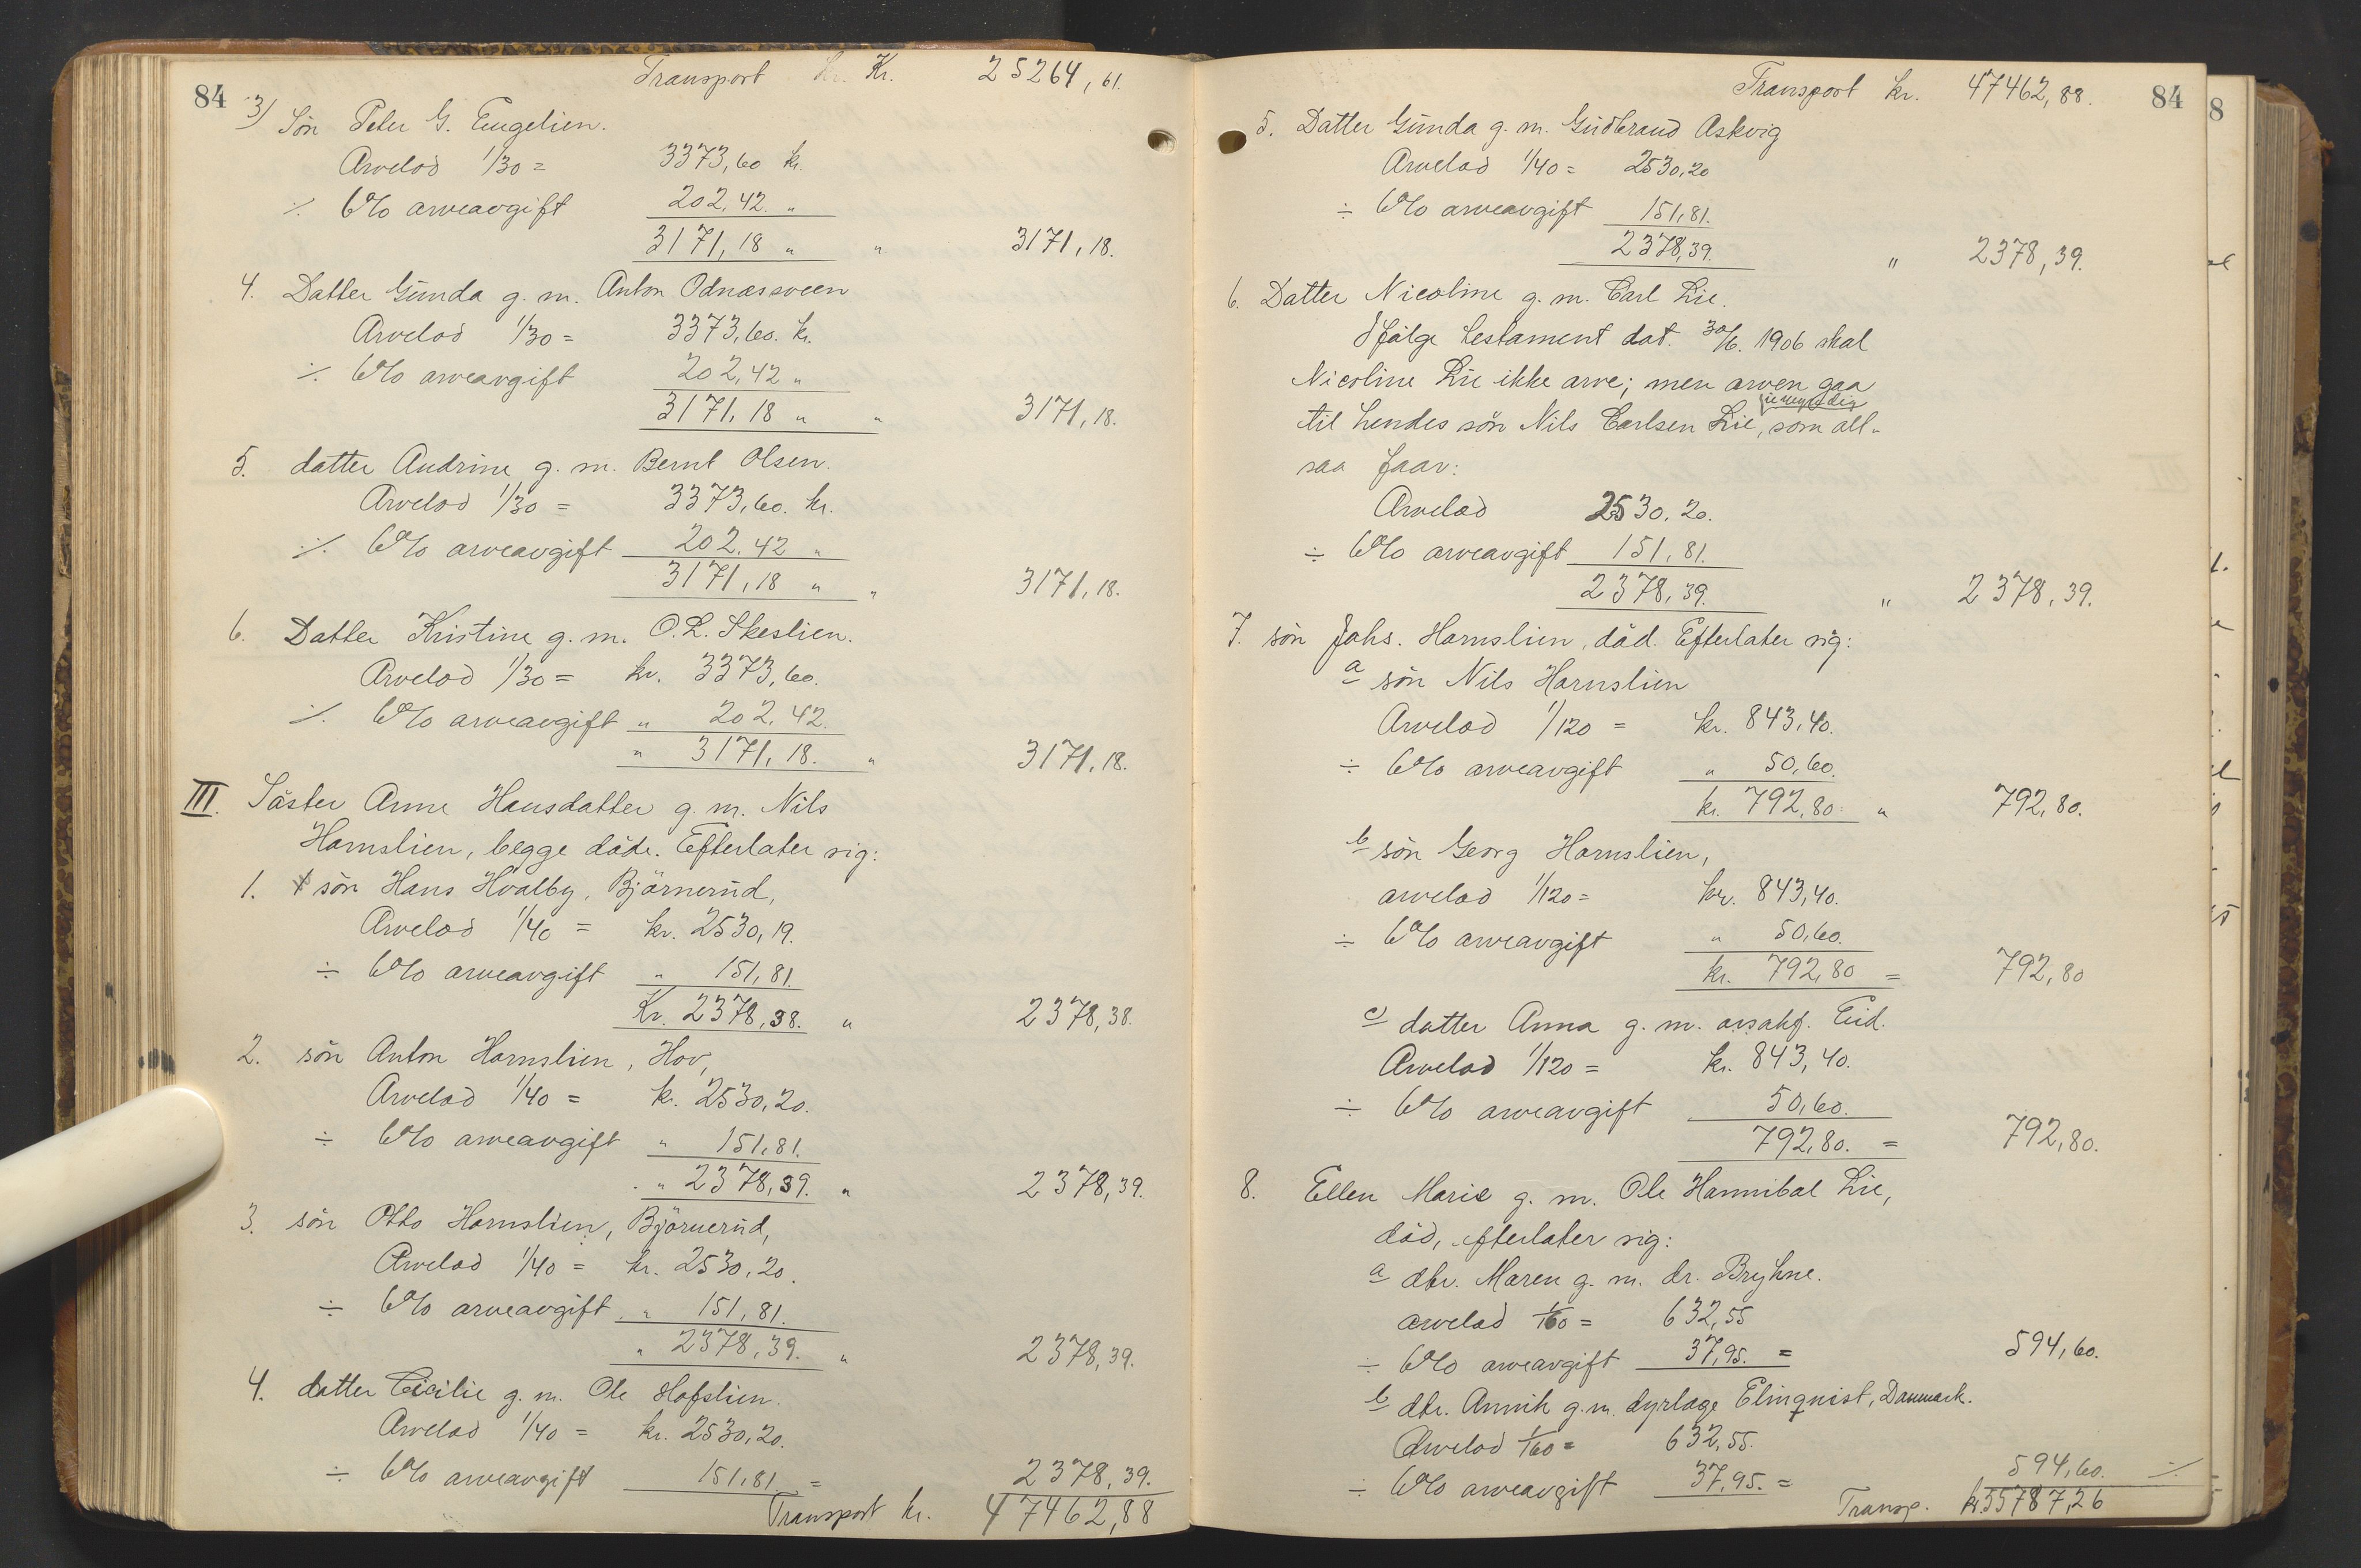 84
Transport kr. Kr. 25264,61.
3) Søn Peter G. Engelien.
Arvelod 1/30 = 3373,60 kr.
÷ 6% arveavgift 202,42. "
3171,18 " " 3171,18.
4. Datter Gunda g. m. Anton Odnæssveen
Arvelod 1/30 = 3373,60. kr.
÷ 6% arveavgift 202,42 "
3171,18 " " 3171,18.
5. datter Andrine g. m. Bernt Olsen.
Arvelod 1/30 = 3373,60. kr.
÷ 6% arveavgift 202,42 "
3171,18 " " 3171,18.
6. Datter Kristine g. m. O. L. Skeslien.
Arvelod 1/30 = kr. 3373,60.
÷ 6% arveavgift " 202,42.
" 3171,18. " 3171,18.
III. Søster Anne Hansdatter g. m. Nils
Harnslien, begge døde. Efterlater sig:
1. søn Hans Hvalby, Bjørnerud,
Arvelod 1/40 = kr. 2530,19.
÷ 6% arveavgift " 151,81.
Kr. 2378,38. " 2378,38.
2. søn Anton Harnslien, Hov,
Arvelod 1/40 = k. 2530,20.
÷ 6% arveavgift " 151,81.
" 2378,39. " 2378,39.
3. søn Otto Harnslien, Bjørnerud,
Arvelod 1/40 = kr. 2530,20.
÷ 6% arveavgift " 151,81.
" 2378,39. " 2378,39.
4. datter Cicilie g. m. Ole Hofslien.
Arvelod 1/40 = kr. 2530,20.
÷ 6% arveavgift 151,81 = 2378,39.
Transport kr. 47462,88
Transport kr. 47462,88. 84
5. Datter Gunda g. m. Gudbrand Askvig
Arvelod 1/40 = 2530,20
÷ 6% arveavgift 151,81.
2378,39. " 2378,39.
6. Datter Nicoline g. m. Carl Lie.
Ifølge testament dat. 30/6. 1906 skal
Nicoline Lie ikke arve; men arven gaa
til hendes søn Nils Carlsen Lie, som all-
saa faar:
Arvelod 2530,20.
÷ 6% arveavgift 151,81.
2378,39. " 2378,39.
7. søn Johs. Harnslien, død. Efterlater sig:
a søn Nils Harnslien
Arvelod 1/120 = kr. 843,40.
÷ 6% arveavgift " 50,60.
kr. 792,80 " 792,80.
b søn Georg Harnslien,
arvelod 1/120 = kr. 843,40.
÷ 6% arveavgift " 50,60.
kr. 792,80 = 792,80
c) datter Anna g. m. Eid.
Arvelod 1/120 = kr. 843,40.
÷ 6% arveavgift 50,60.
792,80. = 792,80.
8. Ellen Marie g. m. Ole Hannibal Lie,
død, efterlater sig:
a dtr. Maren g. m. dr. Bryhne.
arvelod 1/160 = 632,55
÷ 6% arveavgift 37,95. = 594,60.
b dtr. Annik g. m. dyrlæge Elmqvist, Danmark.
Arvelod 1/160 = 632,55.
÷ 6% arveavgift 37,95. = 594,60. ÷
Transp. kr. 55787,26
8